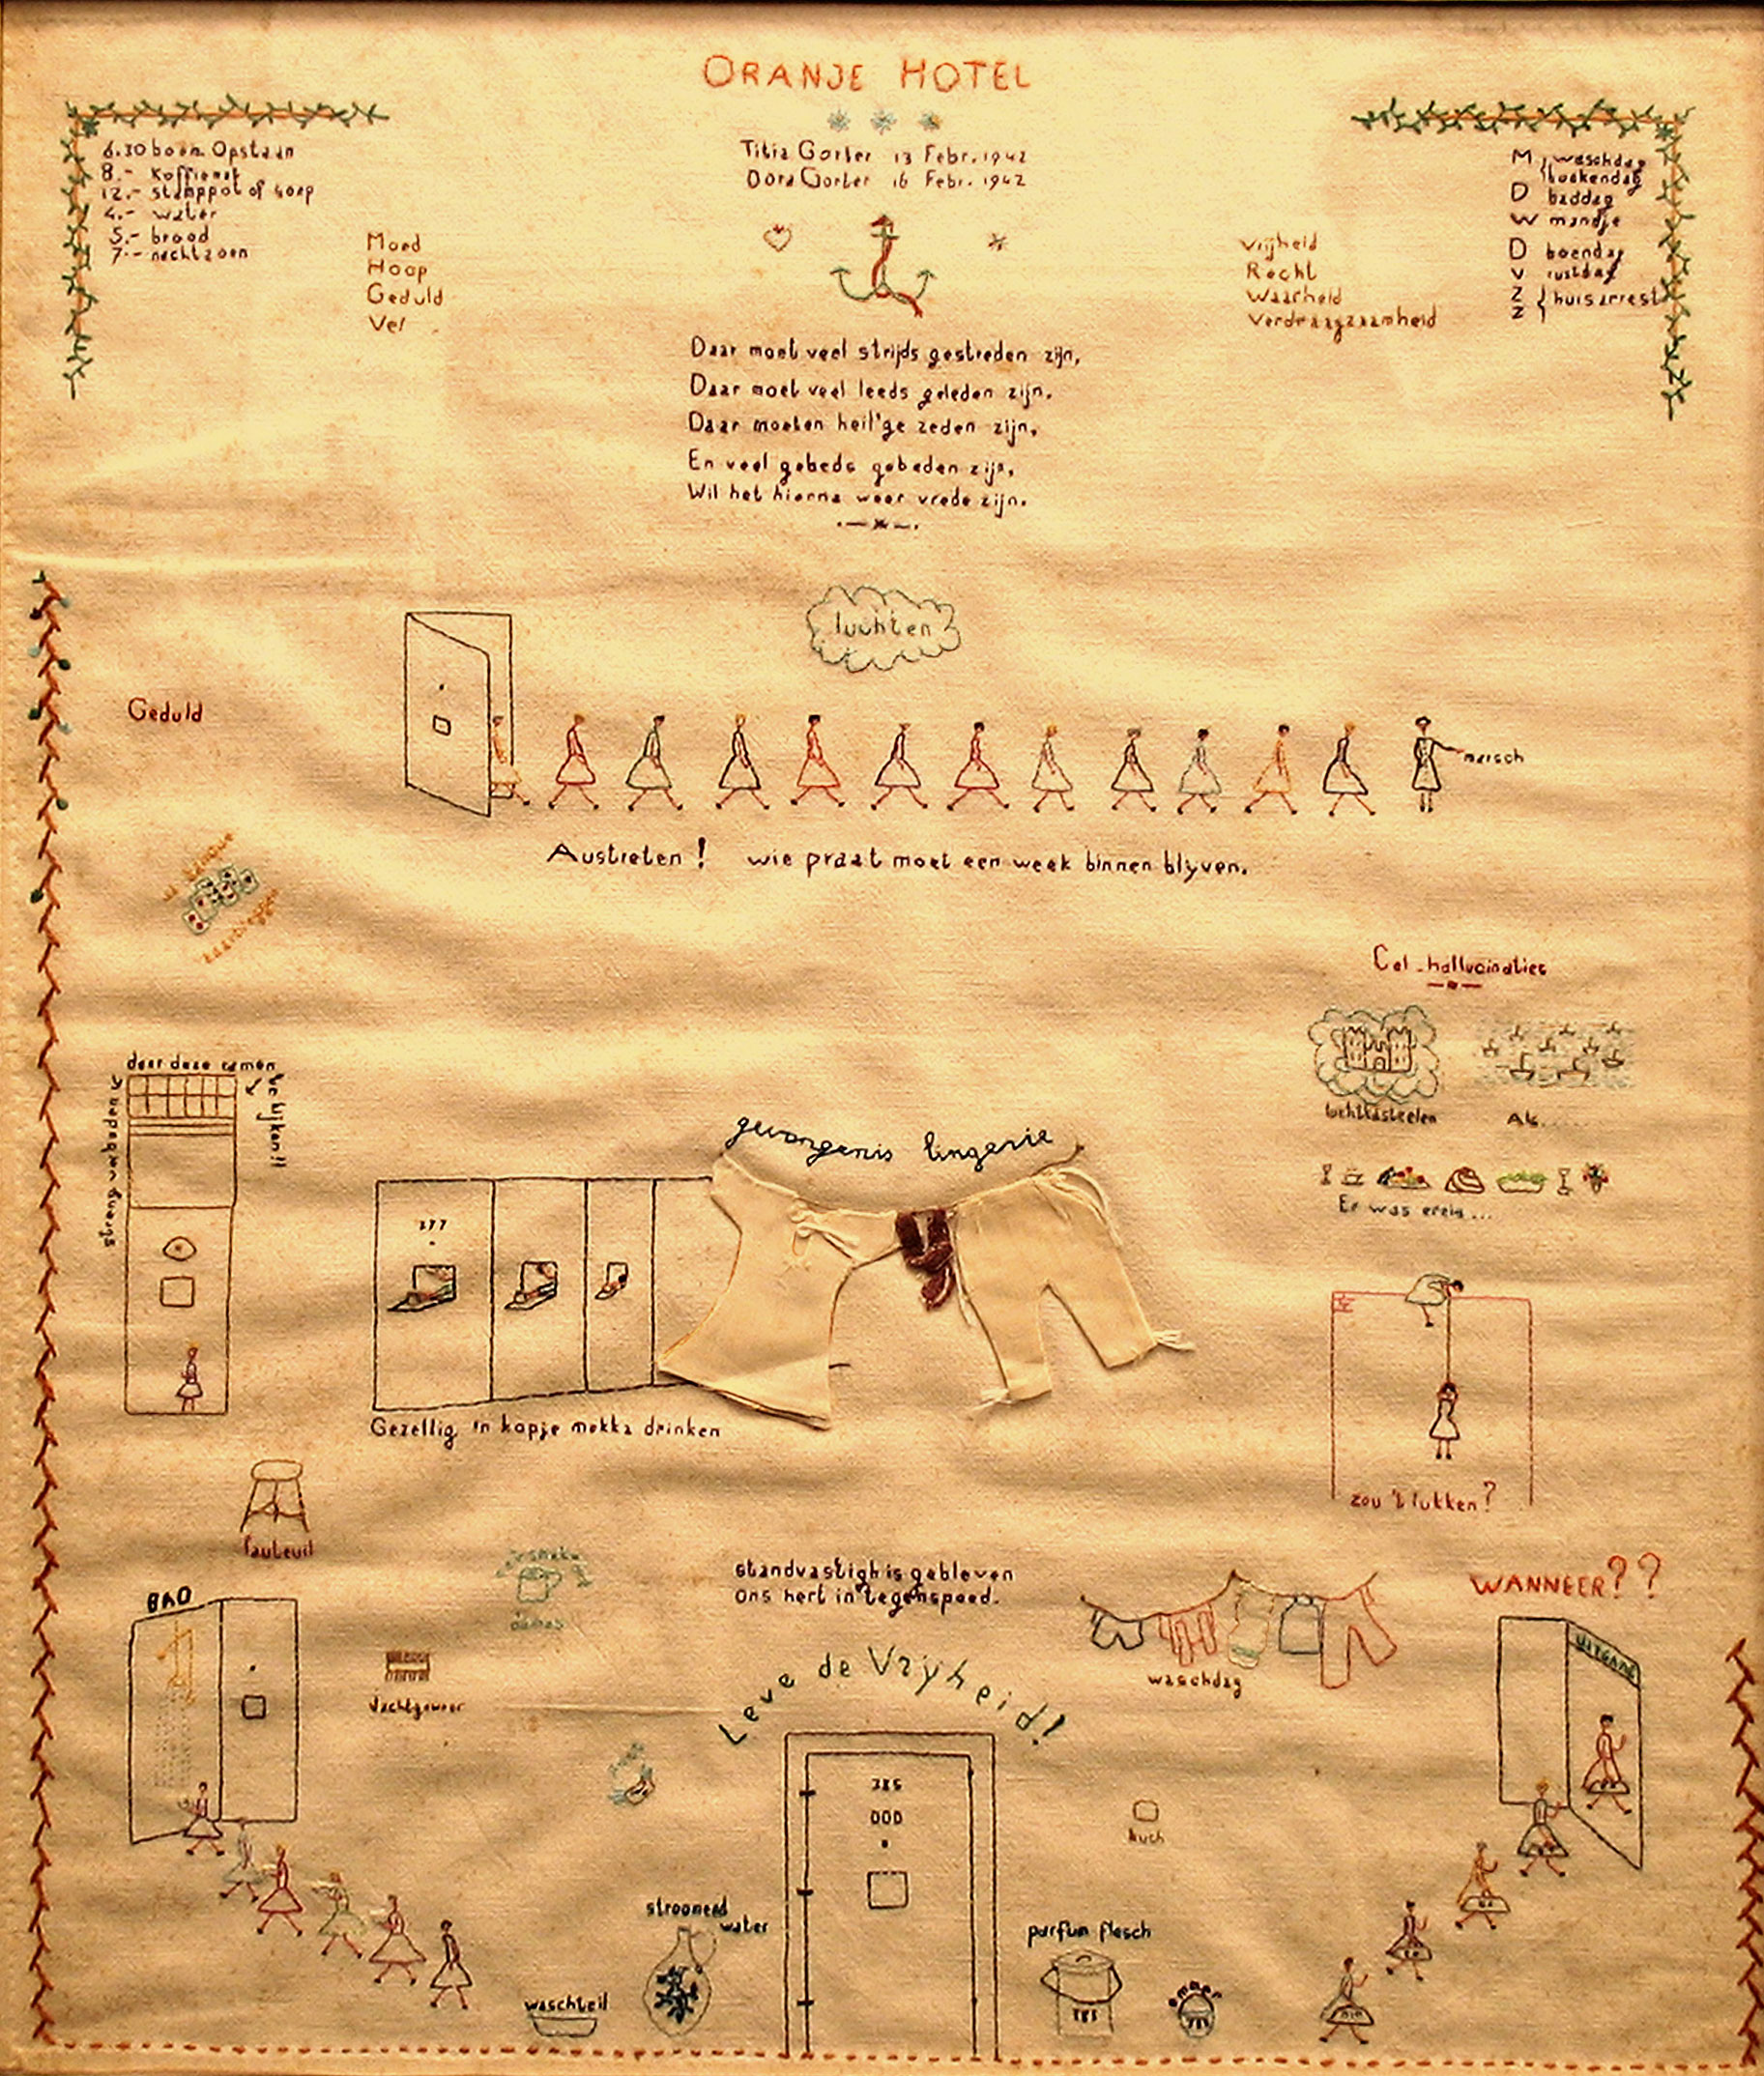 ORANJE HOTEL
Titia Gorter 13 Febr. 1942
Dora Gorter 16 Febr. 1942
6.30 boem Opstaan
8.- Koffieust
12.- stamppot of soep
4.- water
5.- brood
7.- nachtzoen
Moed
Hoop
Geduld
Vet
Vrijheid
Recht
Waarheid
Verdraagzaamheid
M waschdag
boekendag
D baddag
W mandje
D boendag
V rustdag
Z huisarrest
Z
Daar moet veel strijds gestreden zijn,
Daar moet veel leeds geleden zijn.
Daar moeten heil'ge zeden zijn,
En veel gebeds gebeden zijn,
Wil het hierna weer vrede zijn.
luchten
Geduld
marsch
Austreten! wie praat moet een week binnen blyven.
kaartleggen
Cel-hallucinaties
luchtkasteelen
Als.....
Er was eens...
door deze ramen
te kijken!!
streng verboden
gevangenis lingerie
377
Gezellig 'n kopje mokka drinken
zou 't lukken?
fauteuil
BAD
dames
Jachtgeweer
standvastigh is gebleven
ons hert in tegenspoed.
waschdag
WANNEER??
UITGANG
Leve de Vryheid!
385
000
kuch
stroomend
water
waschteil
parfum flesch
385
emmer
385